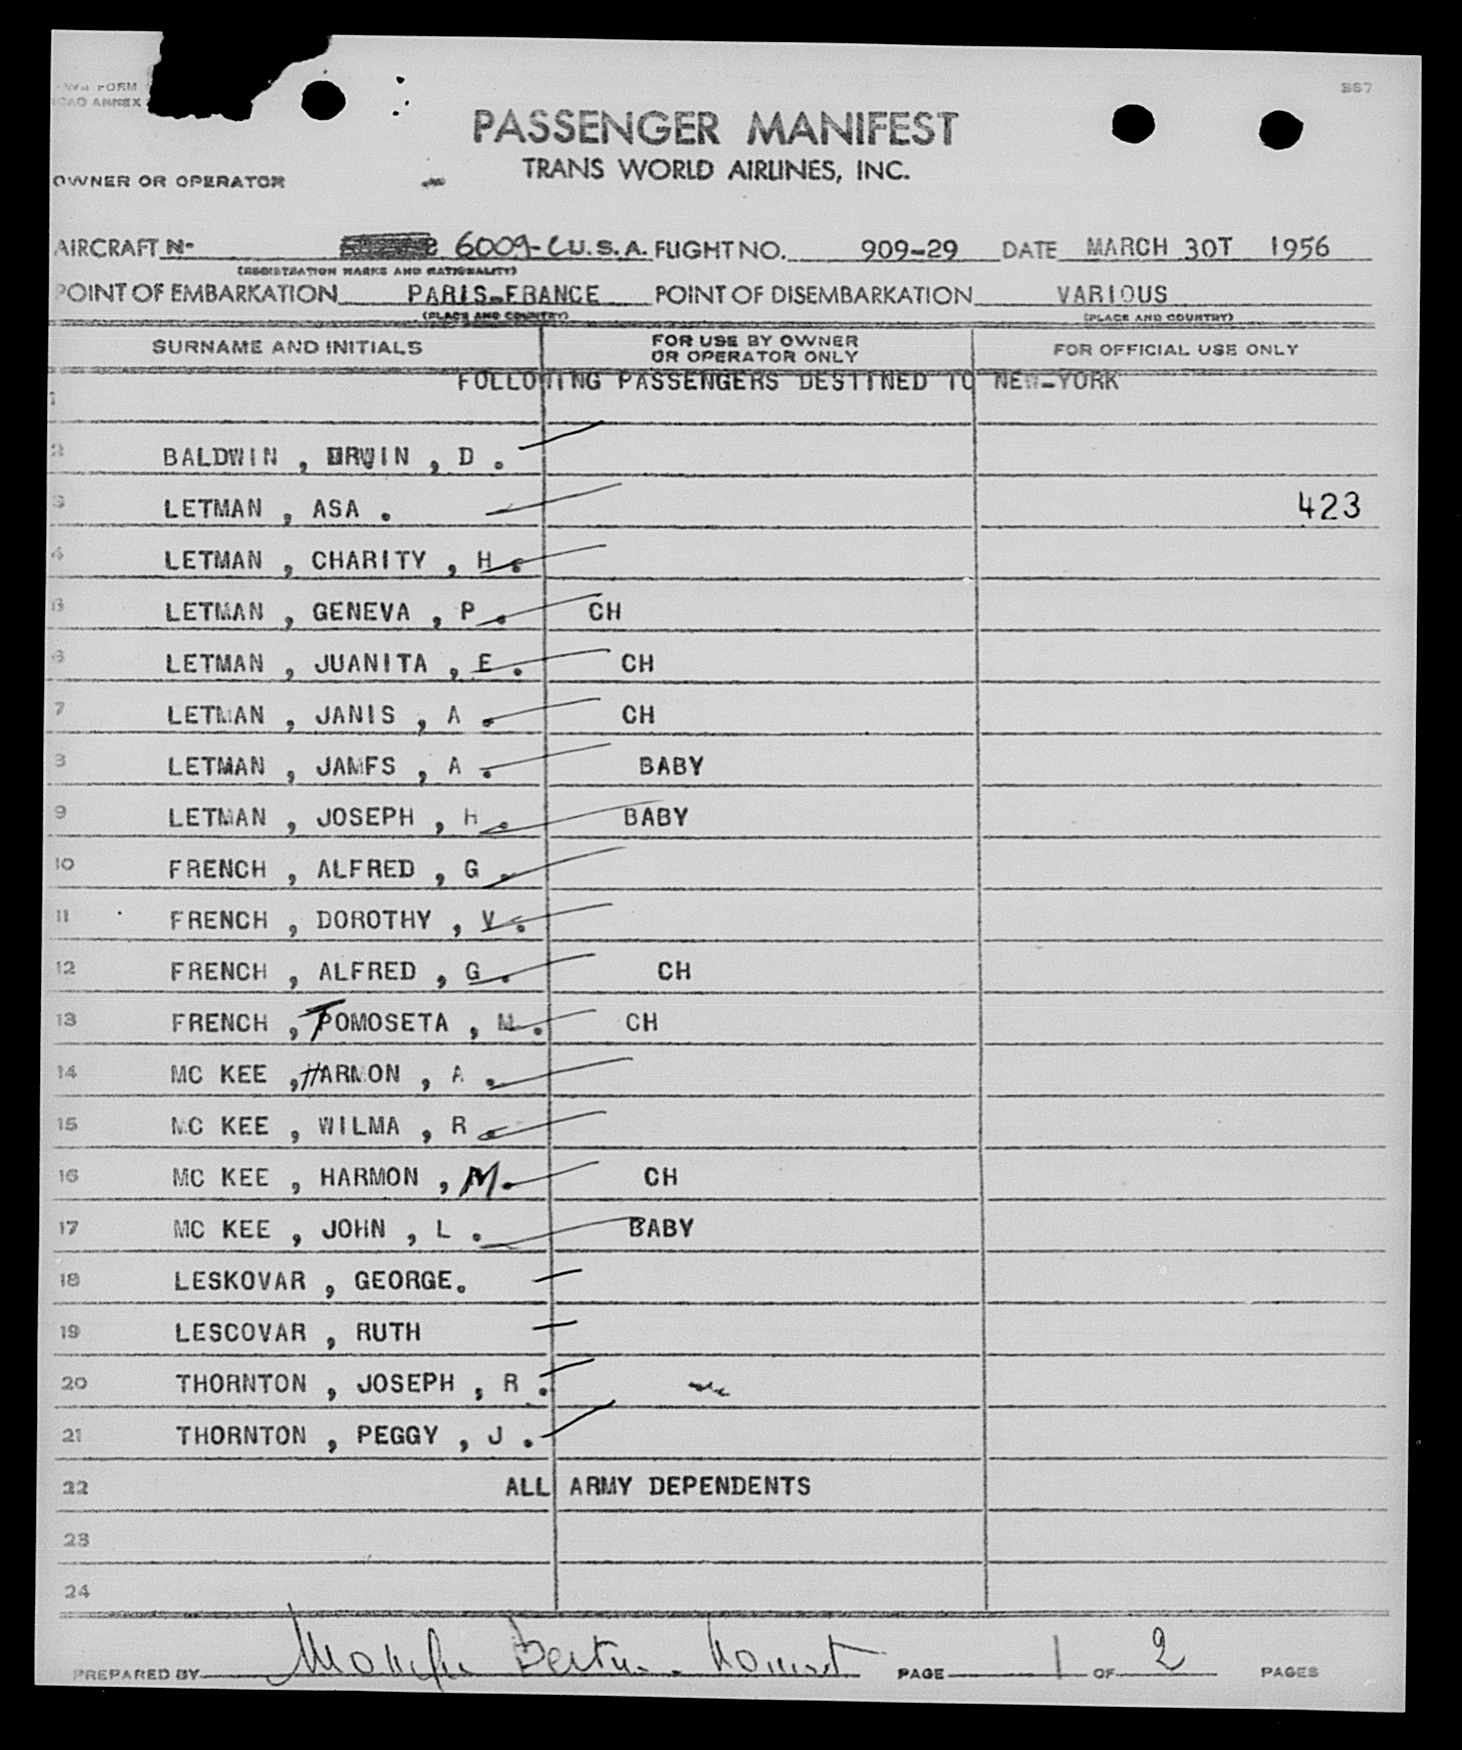 FORM
ICAO ANNEX
867
PASSENGER MANIFEST
TRANS WORLD AIRLINES, INC.
OWNER OR OPERATOR
AIRCRAFT N- 6009-C U.S.A. FLIGHT NO. 909-29 DATE MARCH 30T 1956
(REGISTRATION MARKS AND NATIONALITY)
POINT OF EMBARKATION PARIS-FRANCE POINT OF DISEMBARKATION VARIOUS
(PLACE AND COUNTRY) (PLACE AND COUNTRY)
SURNAME AND INITIALS FOR USE BY OWNER OR OPERATOR ONLY FOR OFFICIAL USE ONLY
FOLLOWING PASSENGERS DESTINED TO NEW-YORK
1
2 BALDWIN , ERWIN , D .
3 LETMAN , ASA . 423
4 LETMAN , CHARITY , H .
5 LETMAN , GENEVA , P . CH
6 LETMAN , JUANITA , E . CH
7 LETMAN , JANIS , A . CH
8 LETMAN , JAMES , A . BABY
9 LETMAN , JOSEPH , H . BABY
10 FRENCH , ALFRED , G .
11 FRENCH , DOROTHY , V .
12 FRENCH , ALFRED , G . CH
13 FRENCH , TOMOSETA , M . CH
14 MC KEE , HARMON , A .
15 MC KEE , WILMA , R .
16 MC KEE , HARMON , M . CH
17 MC KEE , JOHN , L . BABY
18 LESKOVAR , GEORGE.
19 LESCOVAR , RUTH
20 THORNTON , JOSEPH , R .
21 THORNTON , PEGGY , J .
22 ALL ARMY DEPENDENTS
23
24
PREPARED BY PAGE 1 OF 2 PAGES